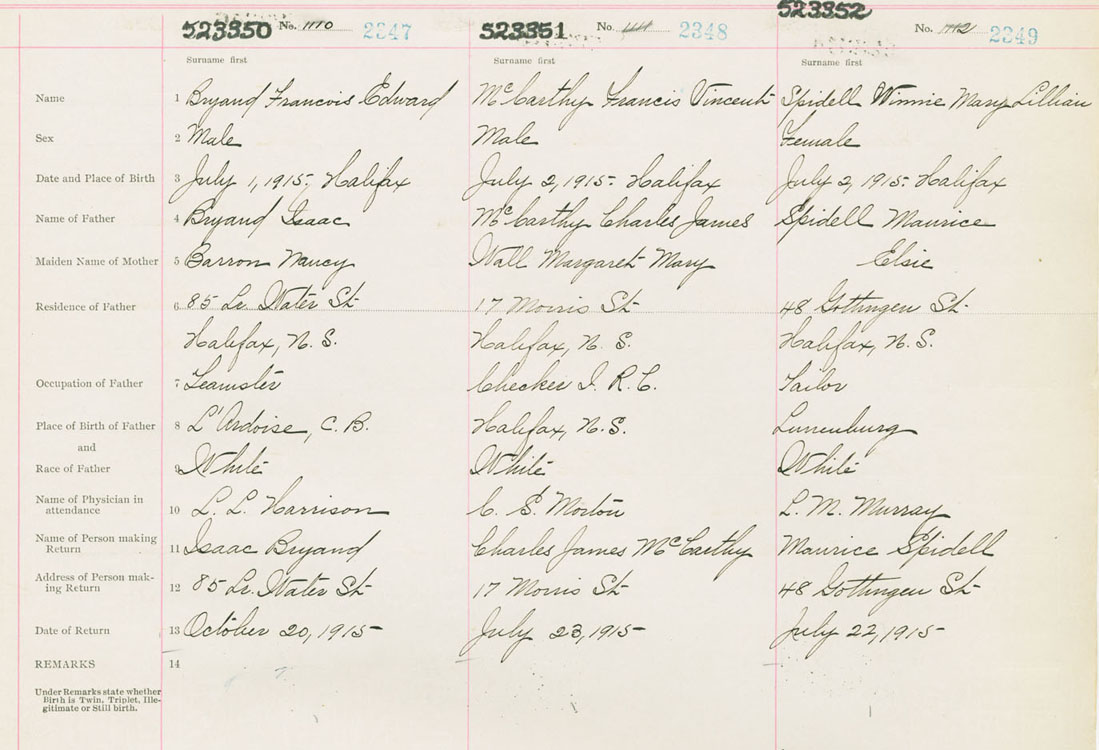 523350 No. 1110 2347 523351 No. 2348 523352 No. 1112 2349
Surname first Surname first Surname first
Name 1 Bryand Francois Edward McCarthy Francis Vincent Spidell Winnie Mary Lillian
Sex 2 Male Male Female
Date and Place of Birth 3 July 1, 1915, Halifax July 2, 1915. Halifax July 2, 1915. Halifax
Name of Father 4 Bryand Isaac McCarthy Charles James Spidell Maurice
Maiden Name of Mother 5 Barron Nancy Wall Margaret Mary Elsie
Residence of Father 6 85 Lr. Water St 17 Morris St 48 Gottingen St
Halifax, N. S. Halifax, N. S. Halifax, N. S.
Occupation of Father 7 Teamster Checker I. R. C. Tailor
Place of Birth of Father 8 L'Ardoise, C. B. Halifax, N. S. Lunenburg
and
Race of Father 9 White White White
Name of Physician in
attendance 10 L. L. Harrison C. S. Morton L. M. Murray
Name of Person making
Return 11 Isaac Bryand Charles James McCarthy Maurice Spidell
Address of Person mak-
ing Return 12 85 Lr. Water St 17 Morris St 48 Gottingen St
Date of Return 13 October 20, 1915 July 23, 1915 July 22, 1915
REMARKS 14
Under Remarks state whether
Birth is Twin, Triplet, Ille-
gitimate or Still birth.